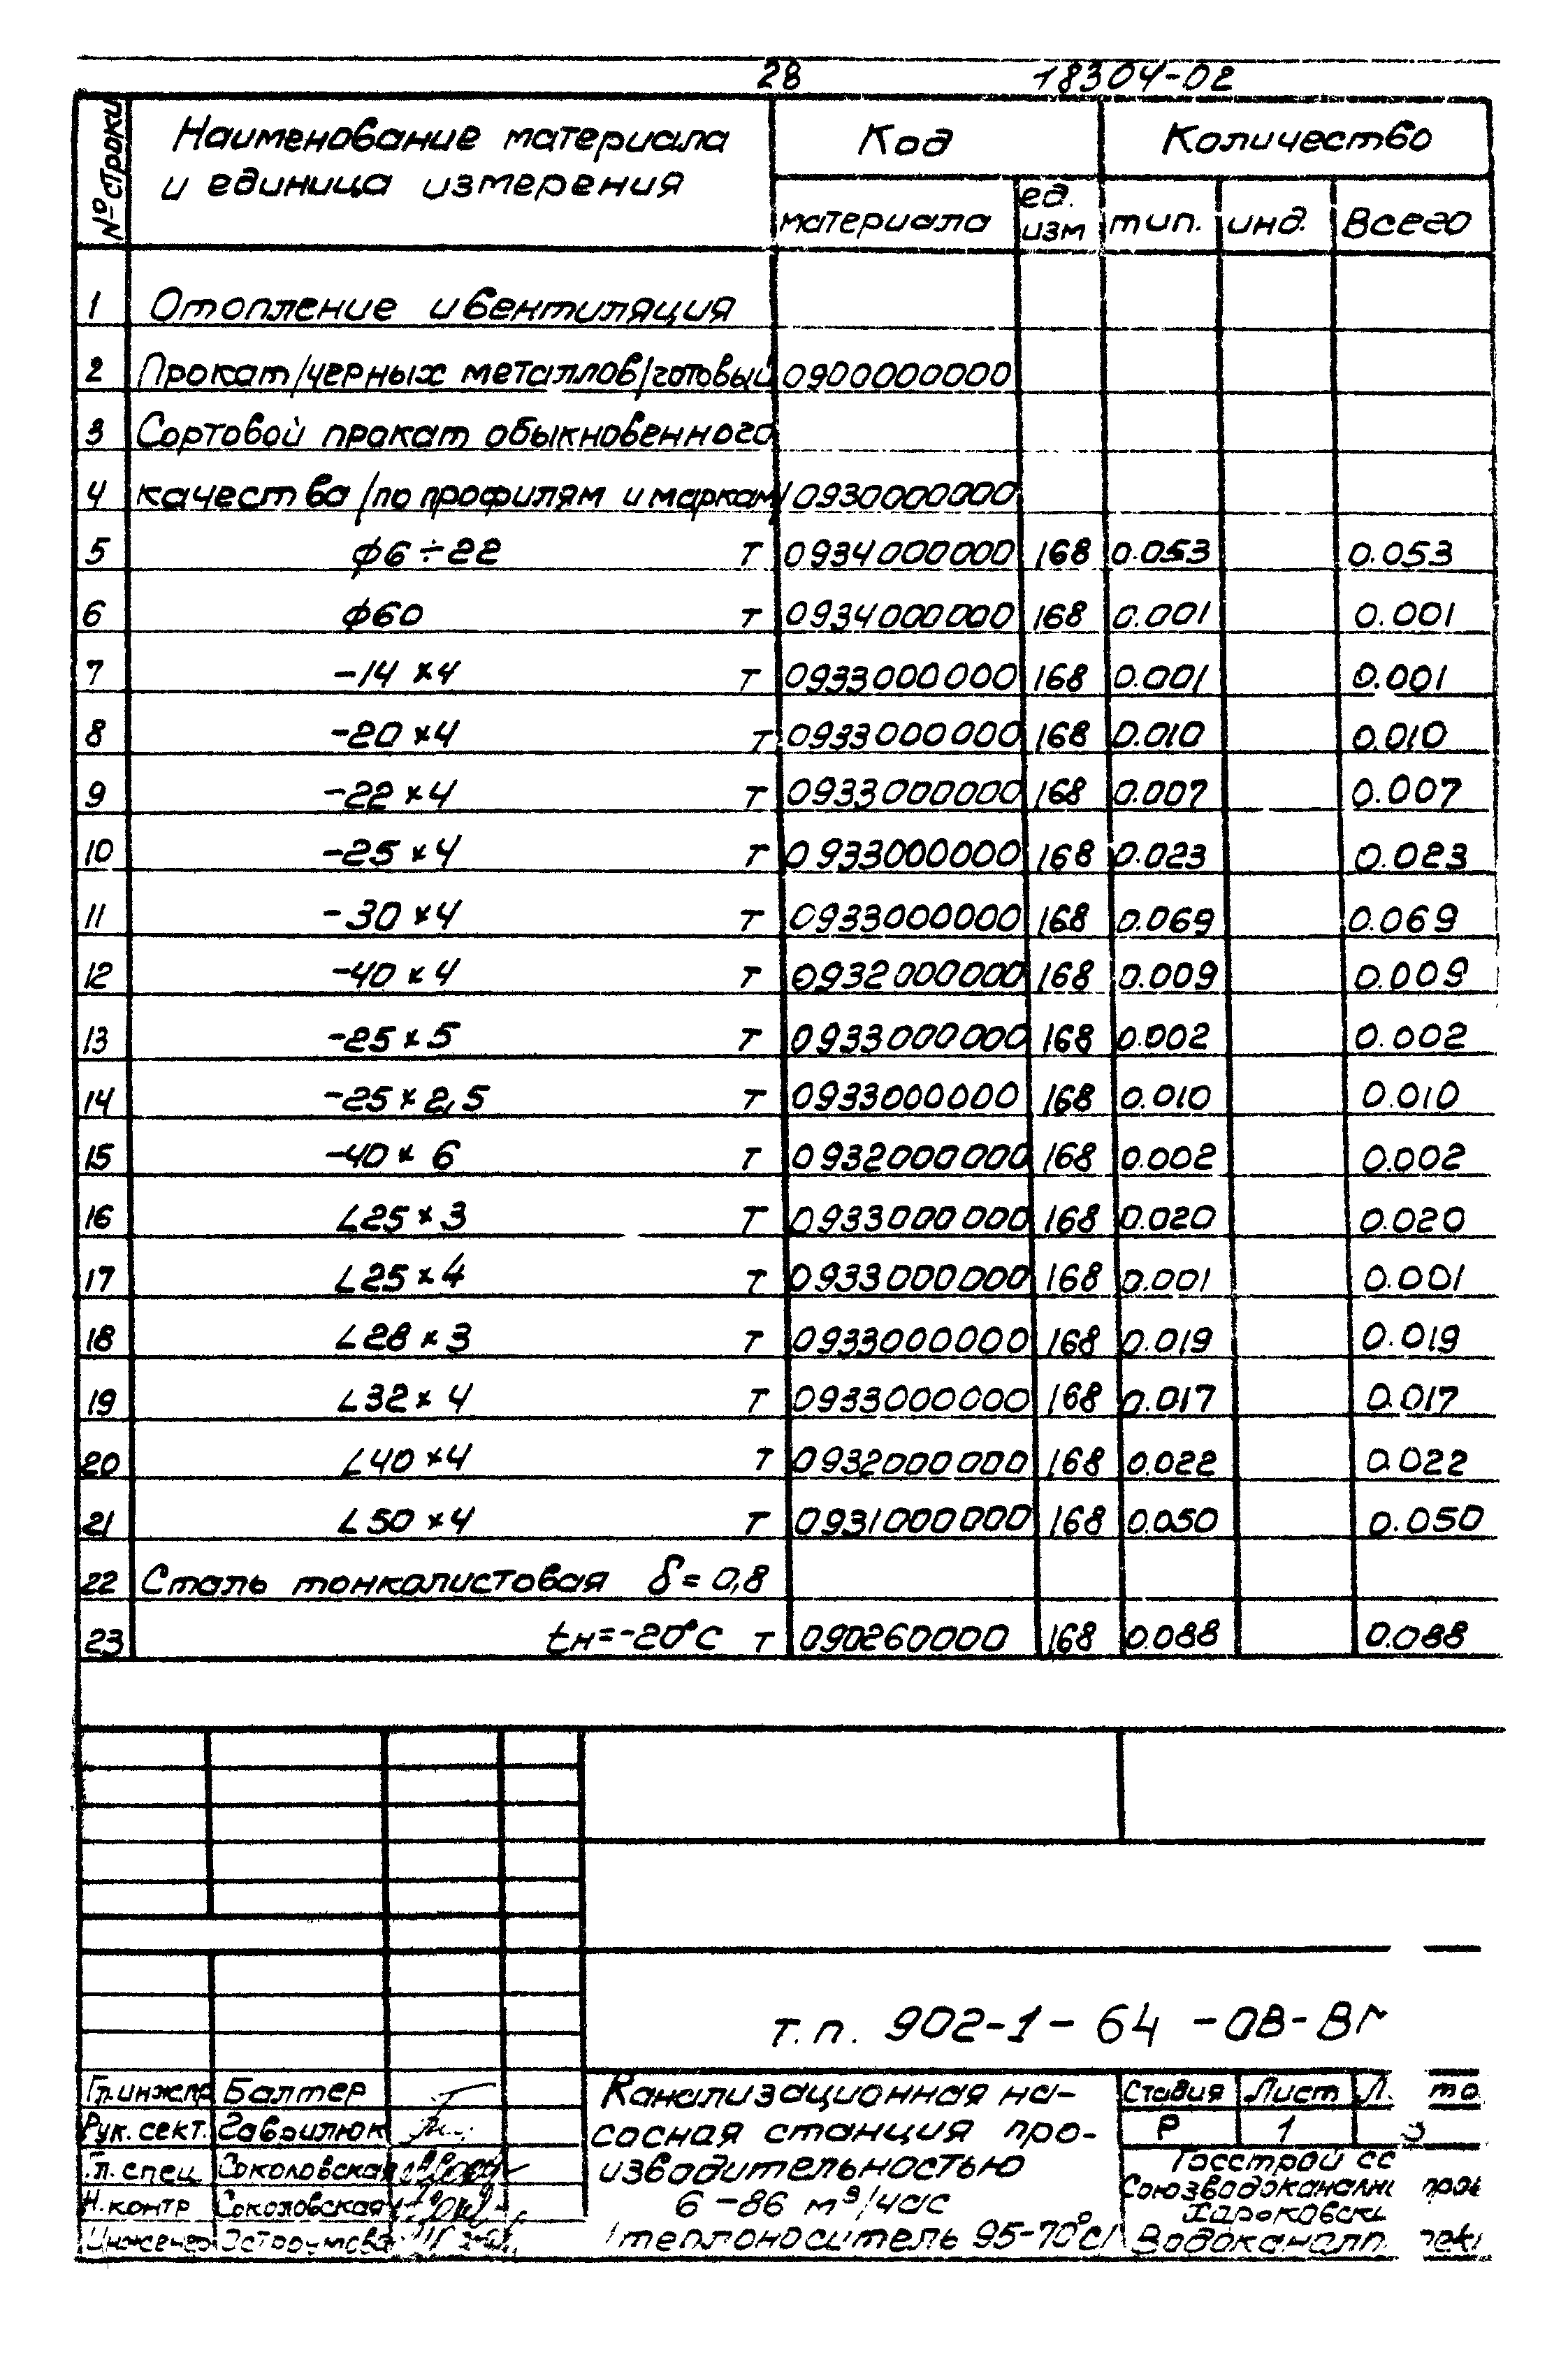 28 18304-02
№ строки Наименование материала Код Количество
и единица измерения
материала ед. изм тип. инд. Всего
1 Отопление и вентиляция
2 Прокат /черных металлов/ готовый 0900000000
3 Сортовой прокат обыкновенного
4 качества /по профилям и маркам/ 0930000000
5 ϕ6÷22 т 0934000000 168 0.053 0.053
6 ϕ60 т 0934000000 168 0.001 0.001
7 -14×4 т 0933000000 168 0.001 0.001
8 -20×4 т 0933000000 168 0.010 0.010
9 -22×4 т 0933000000 168 0.007 0.007
10 -25×4 т 0933000000 168 0.023 0.023
11 -30×4 т 0933000000 168 0.069 0.069
12 -40×4 т 0932000000 168 0.009 0.009
13 -25×5 т 0933000000 168 0.002 0.002
14 -25×2,5 т 0933000000 168 0.010 0.010
15 -40×6 т 0932000000 168 0.002 0.002
16 L25×3 т 0933000000 168 0.020 0.020
17 L25×4 т 0933000000 168 0.001 0.001
18 L28×3 т 0933000000 168 0.019 0.019
19 L32×4 т 0933000000 168 0.017 0.017
20 L40×4 т 0932000000 168 0.022 0.022
21 L50×4 т 0931000000 168 0.050 0.050
22 Сталь тонколистовая δ=0,8
23 tн=-20°С т 090260000 168 0.088 0.088
т.п. 902-1-64-08-ВМ
Гл.инж.пр Балтер
Рук. сект. Гаврилюк
Гл. спец Соколовская
Н. контр Соколовская
Инженер
Канализационная на-
сосная станция про-
изводительностью
6-86 м³/час
/теплоноситель 95-70°с/
Стадия Лист
Р 1 3
Госстрой сс
Союзводоканал
Водоканалп